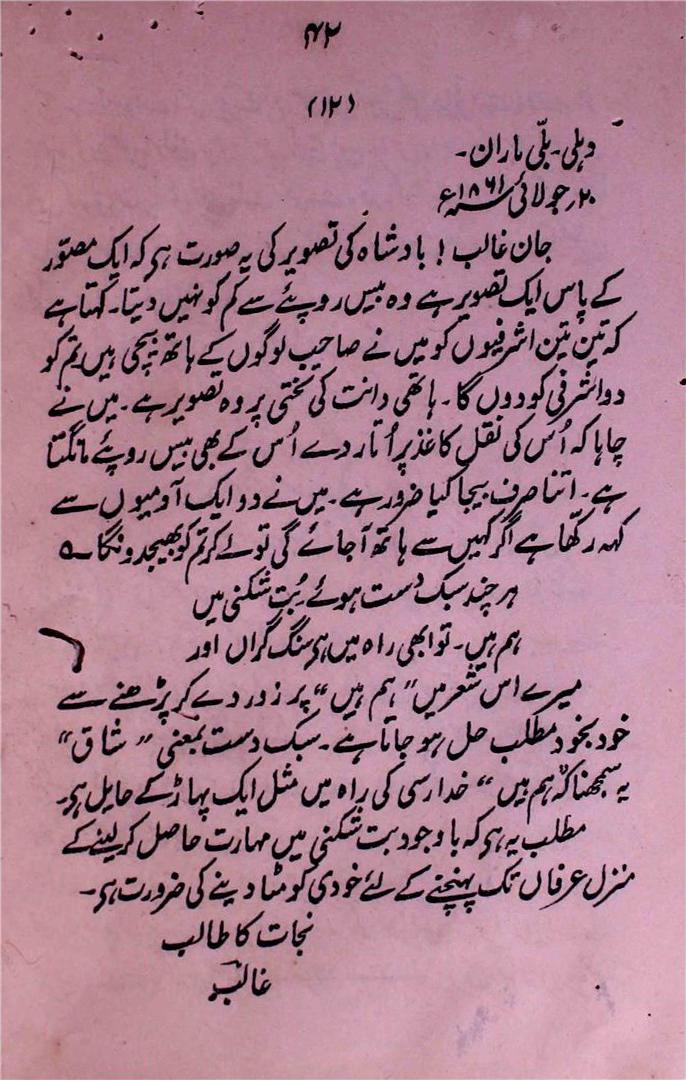 ۴۲
(۱۲)
دہلی۔ بلّی ماران۔
۲۰؍جولائی سنہ ۱۸۶۱ء
جان غالب! بادشاہ کی تصویر کی یہ صورت ہی کہ ایک مصوّر
کے پاس ایک تصویر ہے وہ بیس روپئے سے کم کو نہیں دیتا۔ کہتا ہے
کہ تین تین اشرفیوں کو میں نے صاحب لوگوں کے ہاتھ بیچی ہیں تم کو
دو اشرفی کو دوں گا۔ ہاتھی دانت کی تختی پر وہ تصویر ہے۔ میں نے
چاہا کہ اُس کی نقل کاغذ پر اُتار دے اُس کے بھی بیس روپئے مانگتا
ہے۔ اتنا صرف بیجا کیا ضرور ہے۔ میں نے دو ایک آدمیوں سے
کہہ رکھا ہے اگر کہیں سے ہاتھ آجائے گی تو لے کر تم کو بھیجدونگا ؎
ہر چند سبک دست ہوئے بُت شکنی میں
ہم ہیں۔ تو ابھی راہ میں ہی سنگ گراں اور
میرے اس شعر میں "ہم ہیں" پر زور دے کر پڑھنے سے
خود بخود مطلب حل ہو جاتا ہے۔ سبک دست بمعنی "شاق"
یہ سمجھنا کہ "ہم ہیں" خدا رسی کی راہ میں مثل ایک پہاڑ کے حایل ہی۔
مطلب یہ ہی کہ باوجود بت شکنی میں مہارت حاصل کر لینے کے
منزل عرفاں تک پہنچنے کے لئے خودی کو مٹا دینے کی ضرورت ہی۔
نجات کا طالب
غالب